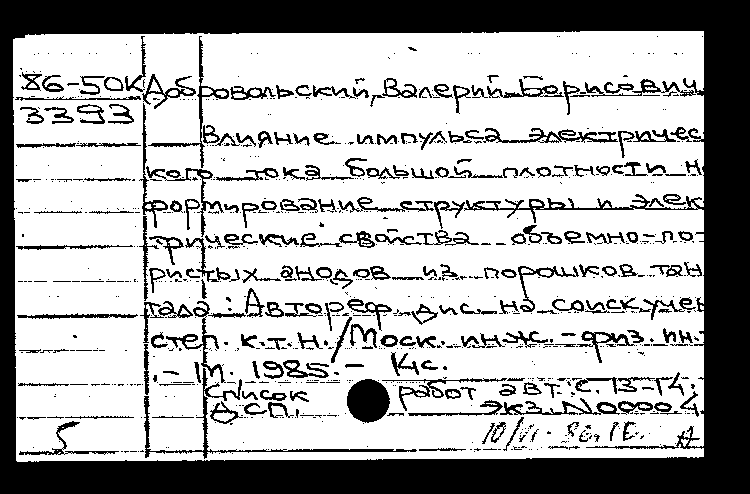 86-50К Добровольский, Валерий Борисович.
3393
Влияние импульса электричес
кого тока большой плотности на
формирование структуры и элек
трические свойства объемно-по-
ристых анодов из порошков тан
тала: Автореф. дис. на соиск учен
степ. к.т.н. / Моск. инж.-физ. ин-т
.- М. 1985. - 14с.
Список работ авт.: с. 13-14.
ДСП. Экз. N0000.4
5 10/VI- 86. А